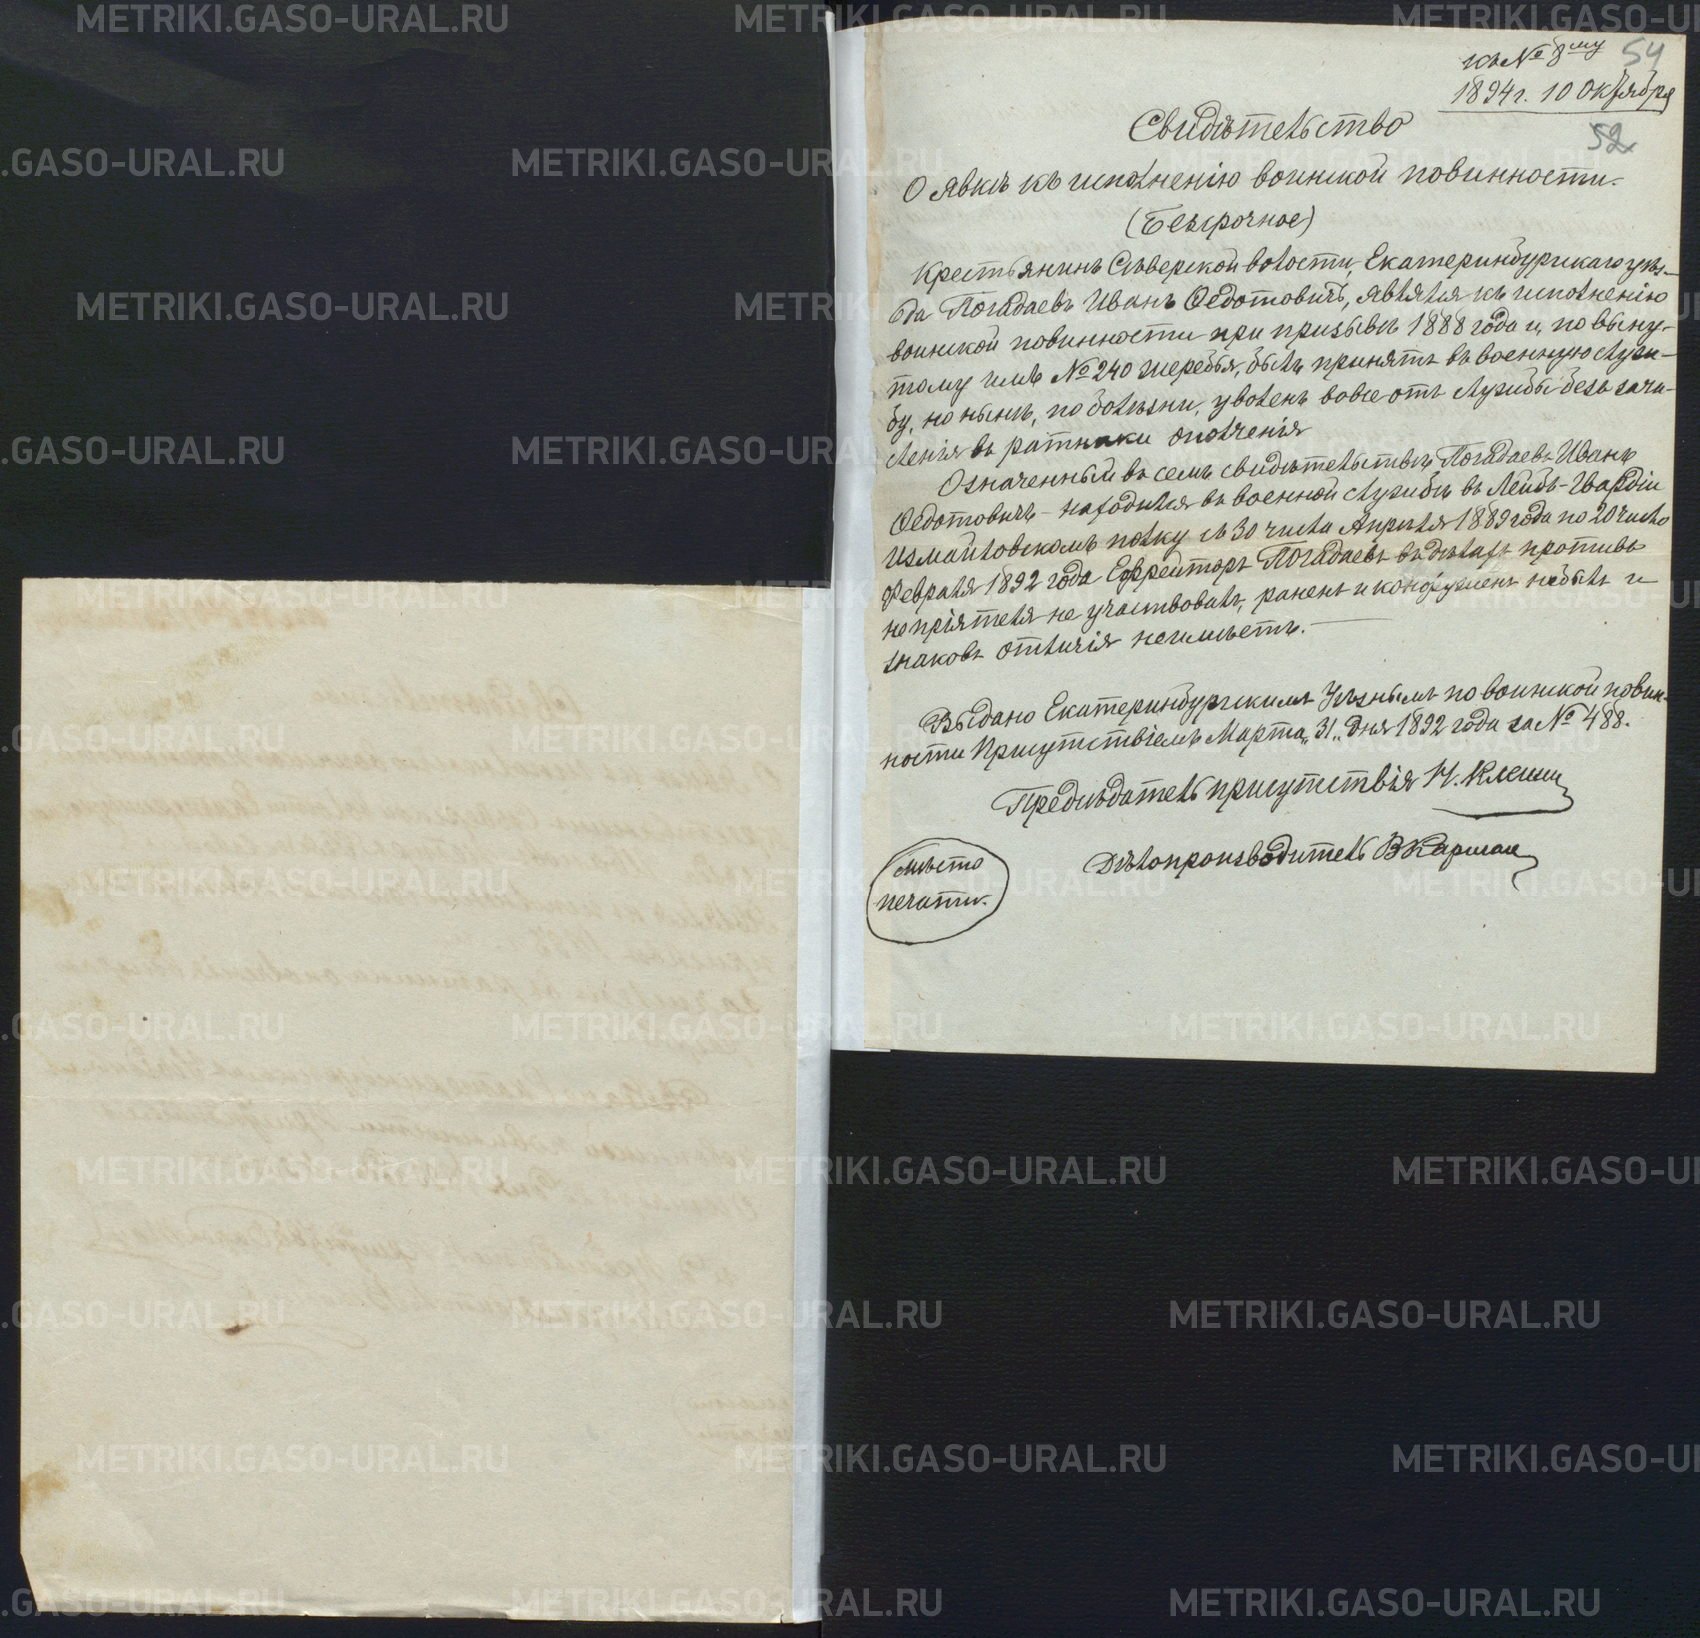 къ № 8му 54
1894 г. 10 Октября
52
Свидѣтельство
О явкѣ къ исполненію воинской повинности.
(Безсрочное)
Крестьянинъ Сѣверской волости, Екатеринбургскаго уѣз-
да Погадаевъ Иванъ Ѳедотовичъ, являлся къ исполненію
воинской повинности при призывѣ 1888 года и, по выну-
тому имъ № 240 жеребья, былъ принятъ въ военную служ-
бу, но нынѣ, по болѣзни, уволенъ вовсе отъ службы безъ зачи-
сленія въ ратники ополченія
Означенный въ семъ свидѣтельствѣ Погадаевъ Иванъ
Ѳедотовичъ – находился въ военной службѣ въ Лейбъ-Гвардіи
Измайловскомъ полку съ 30 числа Апрѣля 1889 года по 20 число
Февраля 1892 года Ефрейторъ Погадаевъ въ дѣлахъ противъ
непріятеля не участвовалъ, раненъ и контуженъ небылъ и
знаковъ отличія неимѣетъ. —
Выдано Екатеринбургскимъ Уѣзнымъ по воинской повин-
ности Присутствіемъ Марта „31„ дня 1892 года за № 488.
Предсѣдатель присутствія Н. Клепинин
Дѣлопроизводитель В Карпал
мѣсто
печати.
METRIKI.GASO-URAL.RU